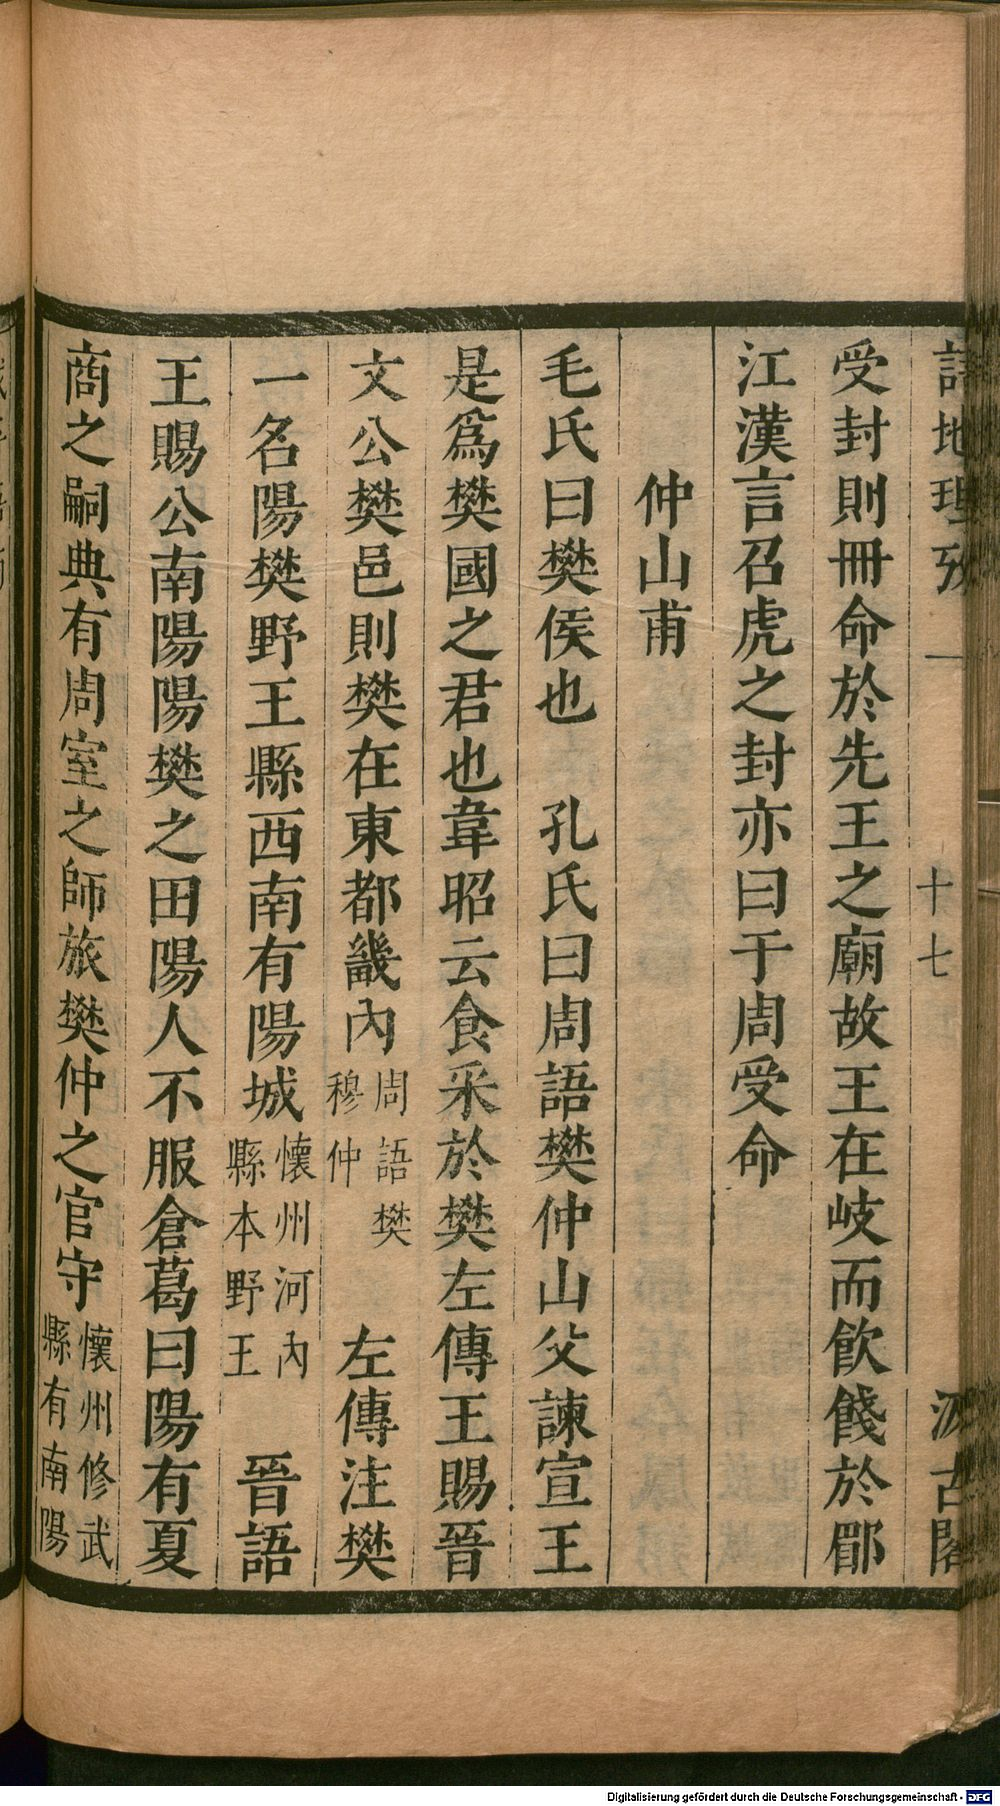 詩地理攷 一 十七 汲古閣
受封則冊命於先王之廟故王在岐而飲餞於郿
江漢言召虎之封亦曰于周受命
仲山甫
毛氏曰樊侯也 孔氏曰周語樊仲山父諫宣王
是爲樊國之君也韋昭云食采於樊左傳王賜晉
文公樊邑則樊在東都畿內周語樊穆仲 左傳注樊
一名陽樊野王縣西南有陽城懷州河內縣本野王 晉語
王賜公南陽陽樊之田陽人不服倉葛曰陽有夏
商之嗣典有周室之師旅樊仲之官守懷州修武縣有南陽
Digitalisierung gefördert durch die Deutsche Forschungsgemeinschaft - DFG